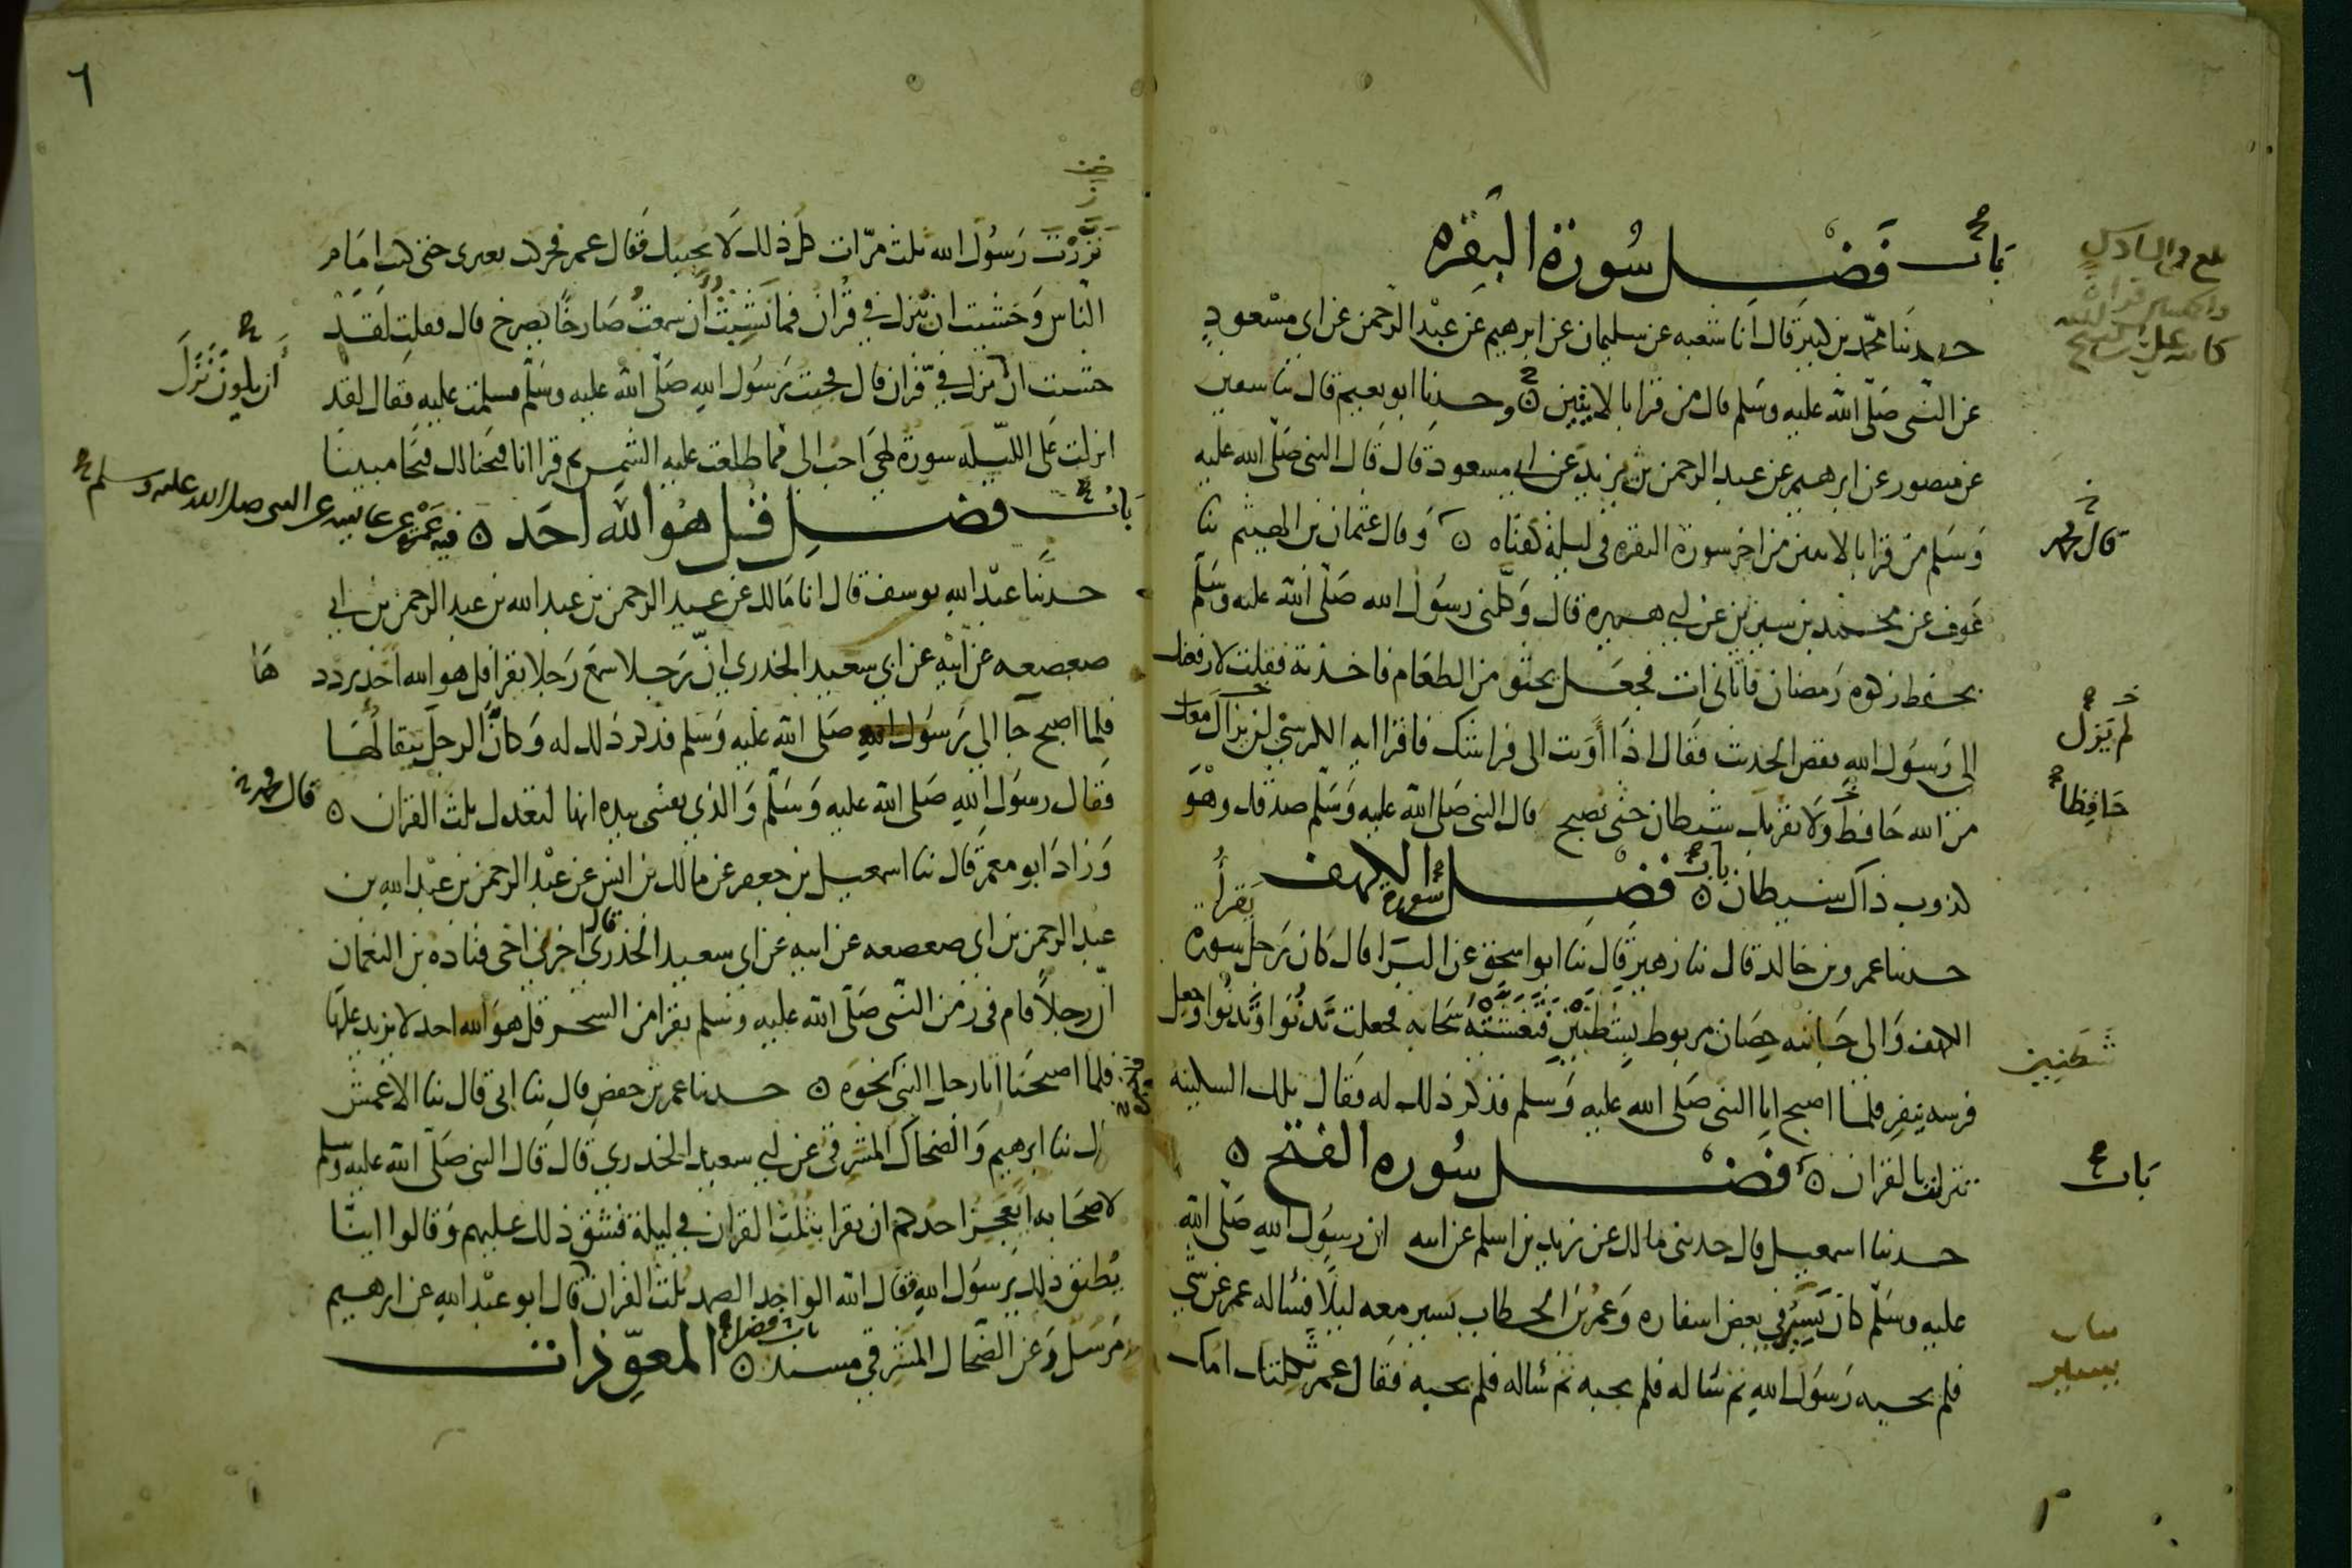 باب فضل سورة البقره
حدثنا محمد بن كثير قال انا شعبه عن سليمان عن ابرهيم عن عبد الرحمن عن ابي مسعود
عن النبي صلى الله عليه وسلم قال من قرا بالايتين ه وحدثنا ابو نعيم قال ثنا سفين
عن منصور عن ابرهيم عن عبد الرحمن بن يزيد عن ابي مسعود قال قال النبي صلى الله عليه
وسلم من قرا بالايتين من اخر سورة البقره في ليلة كفتاه ه وقال عثمان بن الهيثم ثنا
قال محمد
عوف عن محمد بن سيرين عن ابي هريره قال وكلني رسول الله صلى الله عليه وسلم
بحفظ زكوة رمضان فاتاني ات فجعل يحثو من الطعام فاخذته فقلت لارفعنك
الى رسول الله فقص الحديث فقال اذا أويت الى فراشك فاقرا اية الكرسي لن يزال معك
لم يزل
من الله حافظ ولا يقربك شيطان حتى تصبح قال النبي صلى الله عليه وسلم صدقك وهو
حافظا
كذوب ذاك شيطان ه باب فضل سورة الكهف
حدثنا عمرو بن خالد قال ثنا زهير قال ثنا ابو اسحق عن البرا قال كان رجل يقرأ سورة
الكهف والى جانبه حصان مربوط بشطنين فتغشته سحابه فجعلت تدنوا وتدنوا وجعل
شطنين
فرسه ينفر فلما اصبح اتا النبي صلى الله عليه وسلم فذكر ذلك له فقال تلك السكينه
تنزلت بالقران ه فضل سوره الفتح ه
باب
حدثنا اسمعيل قال حدثني مالك عن زيد بن اسلم عن ابيه ان رسول الله صلى الله
عليه وسلم كان يسير في بعض اسفاره وعمر بن الخطاب يسير معه ليلا فسأله عمر عن شي
فلم يجبه رسول الله ثم سأله فلم يجبه ثم سأله فلم يجبه فقال عمر ثكلتك امك
٦
نزرت رسول الله ثلث مرات كل ذلك لا يجيبك فقال عمر فحركت بعيري حتى كنت امام
الناس وخشيت ان ينزل في قران فما نشبت أن سمعت صارخا يصرخ قال فقلت لقد
خشيت ان نزل في قران قال فجئت رسول الله صلى الله عليه وسلم فسلمت عليه فقال لقد
أن يكون نزل
انزلت علي الليله سورة لهي احب الي مما طلعت عليه الشمس ثم قرا انا فتحنا لك فتحا مبينا
باب فضل قل هو الله احد ه فيه عمرة عن عايشه عن النبي صلى الله عليه وسلم
حدثنا عبد الله يوسف قال انا مالك عن عبد الرحمن بن عبد الله بن عبد الرحمن بن ابي
صعصعه عن ابيه عن ابي سعيد الخدري ان رجلا سمع رجلا يقرا قل هو الله احد يردد
ها
فلما اصبح جا الى رسول الله صلى الله عليه وسلم فذكر ذلك له وكان الرجل يتقالها
فقال رسول الله صلى الله عليه وسلم والذي نفسي بيده انها لتعدل ثلث القران ه
قال محمد
وزاد ابو معمر قال ثنا اسمعيل بن جعفر عن مالك بن انس عن عبد الرحمن بن عبد الله بن
عبد الرحمن بن ابي صعصعه عن ابيه عن ابي سعيد الخدري قال اخبرني اخي قتاده بن النعمان
ان رجلا قام في زمن النبي صلى الله عليه وسلم يقرا من السحر قل هو الله احد لا يزيد عليها
فلما اصبحنا اتا رجل النبي نحوه ه حدثنا عمر بن حفص قال ثنا ابي قال ثنا الاعمش
قال ثنا ابرهيم والضحاك المشرقي عن ابي سعيد الخدري قال قال النبي صلى الله عليه وسلم
لاصحابه ايعجز احدكم ان يقرا بثلث القران في ليلة فشق ذلك عليهم وقالوا اينا
يطيق ذلك يرسول الله فقال الله الواحد الصمد ثلث القران قال ابو عبد الله عن ابرهيم
مرسل وعن الضحاك المشرقي مسند ه باب فضل المعوذات